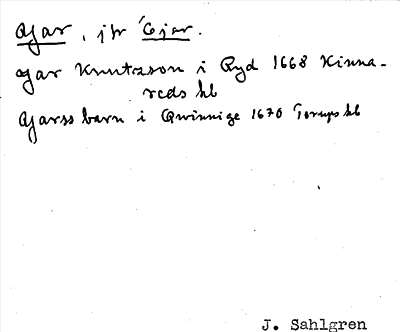 Gjar, jfr Ejar.
Gjar Knutzson i Ryd 1668 Kinna-
reds kb
Gjarss barn i Qwinnige 1670 Torups kb
J. Sahlgren